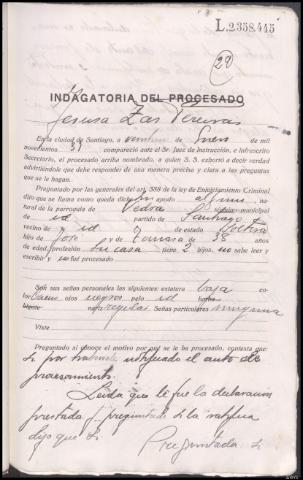 L.2.358.445
29
INDAGATORIA DEL PROCESADO
Jesusa Zas Pereiras
En la ciudad de Santiago, a veintiuno de Enero de mil
novecientos 39 compareció ante el Sr. Juez de Instrucción, e infrascrito
Secretario, el procesado arriba nombrado, a quien S. S. exhortó a decir verdad
advirtiéndole que debe responder de una manera precisa y clara a las preguntas
que se le hagan.
Preguntado por las generales del art. 388 de la ley de Enjuiciamiento Criminal
dijo que se llama como queda dicho apodo
natural de la parroquia de Vedra término municipal
de id partido de Santiago
vecino de id de estado soltera
hijo de José y de Tomasa de 38 años
de edad, profesión su casa tiene 2 hijos, no sabe leer y
escribir y no fué procesado
Son sus señas personales las siguientes: estatura baja co-
lor ojos negros pelo id
nariz regular Señas particulares ninguna
Viste
Preguntado si conoce el motivo por qué se le ha procesado, contesta que
si por notificado el auto de
procesamiento.
Leida que le fue la declaracion
prestada y preguntada si la ratifica
dijo que si
Preguntada si